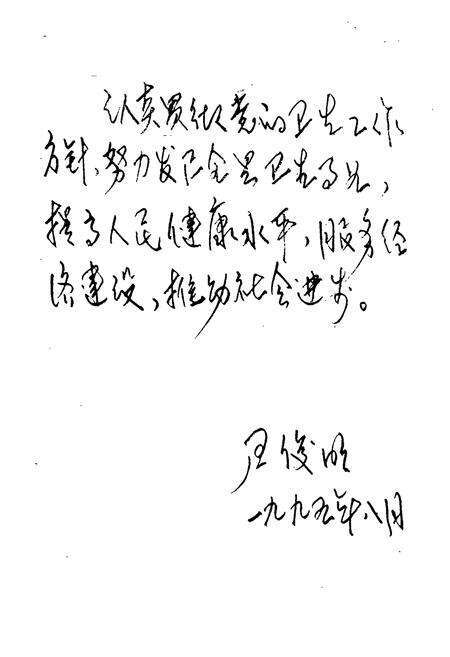 认真贯彻党的卫生工作
方针,努力发展全县卫生事业,
提高人民健康水平,服务经
济建设,推动社会进步。
王俊明
一九九五年八月